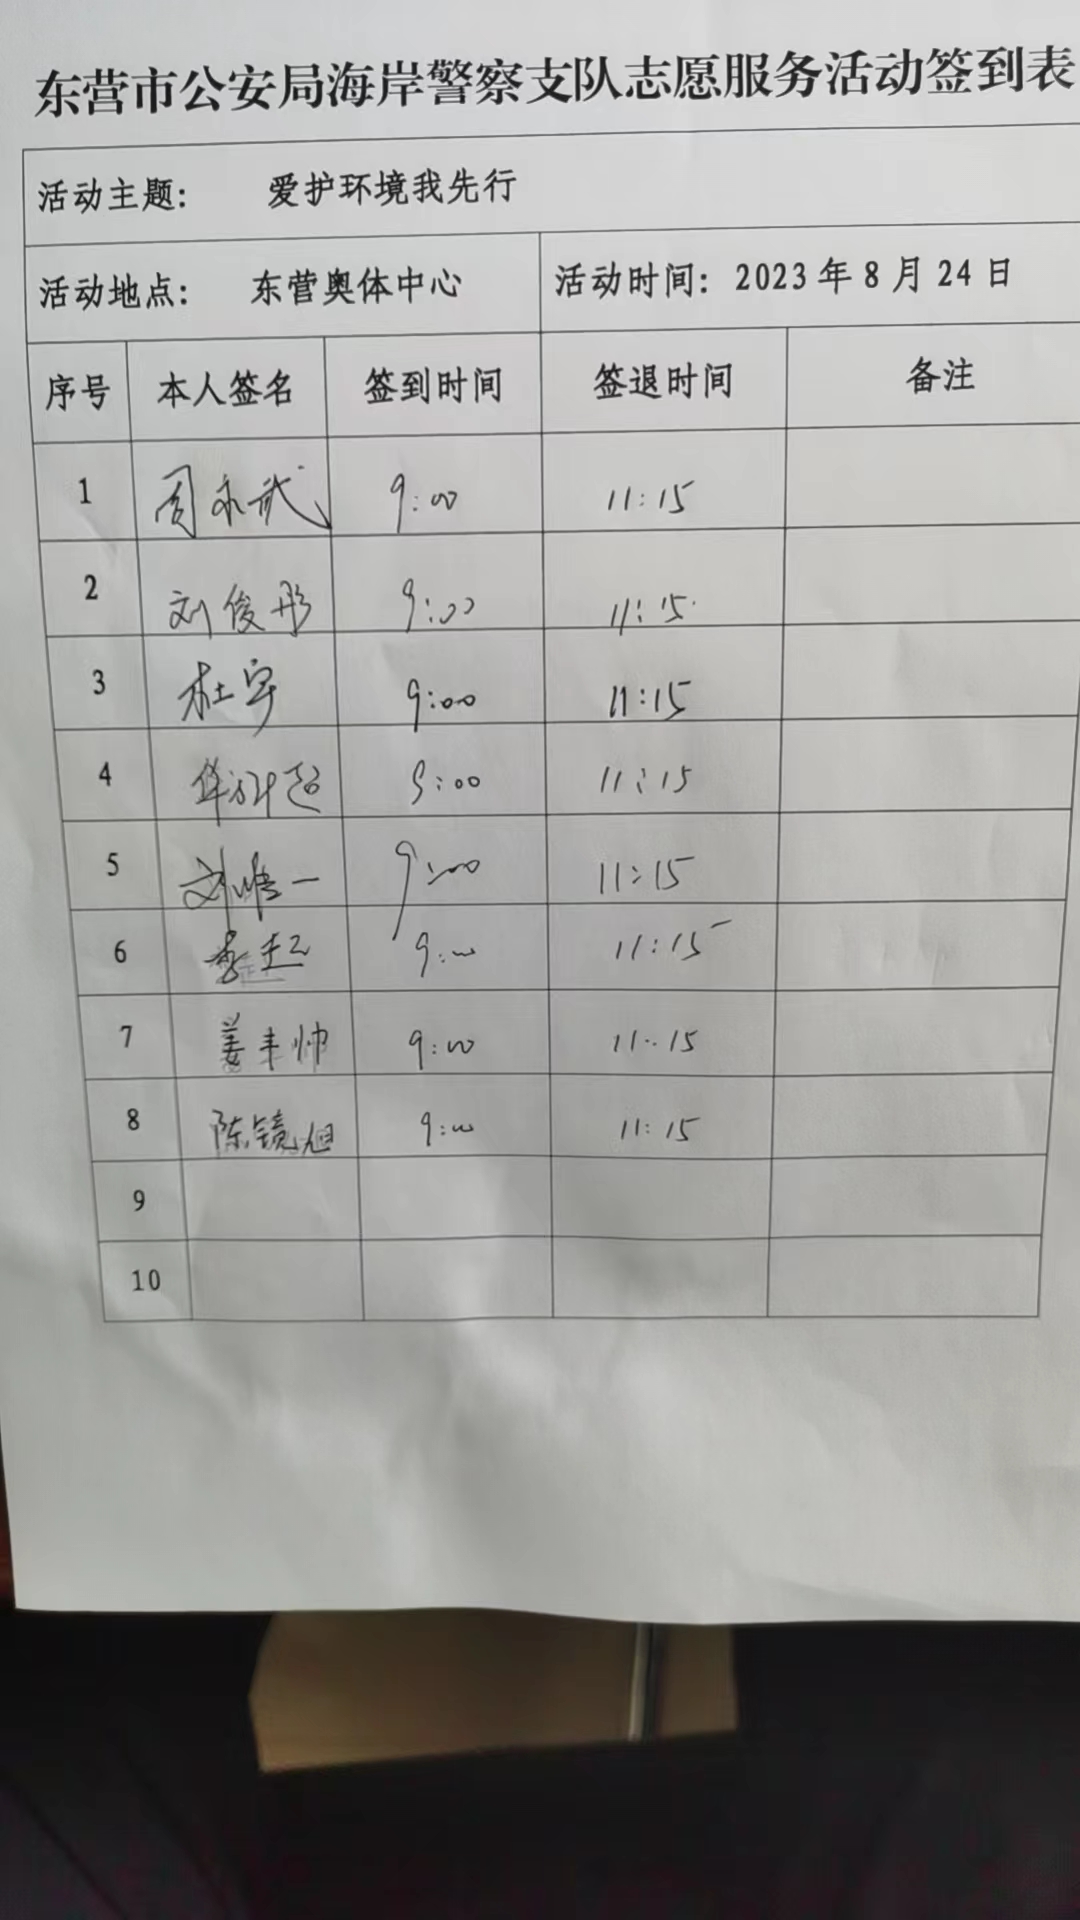 东营市公安局海岸警察支队志愿服务活动签到表
活动主题: 爱护环境我先行
活动地点: 东营奥体中心 活动时间: 2023年8月24日
序号 本人签名 签到时间 签退时间 备注
1 周永武 9:00 11:15
2 刘俊彤 9:00 11:15
3 杜宇 9:00 11:15
4 9:00 11:15
5 9:00 11:15
6 李超 9:00 11:15
7 姜丰帅 9:00 11:15
8 陈镜旭 9:00 11:15
9
10